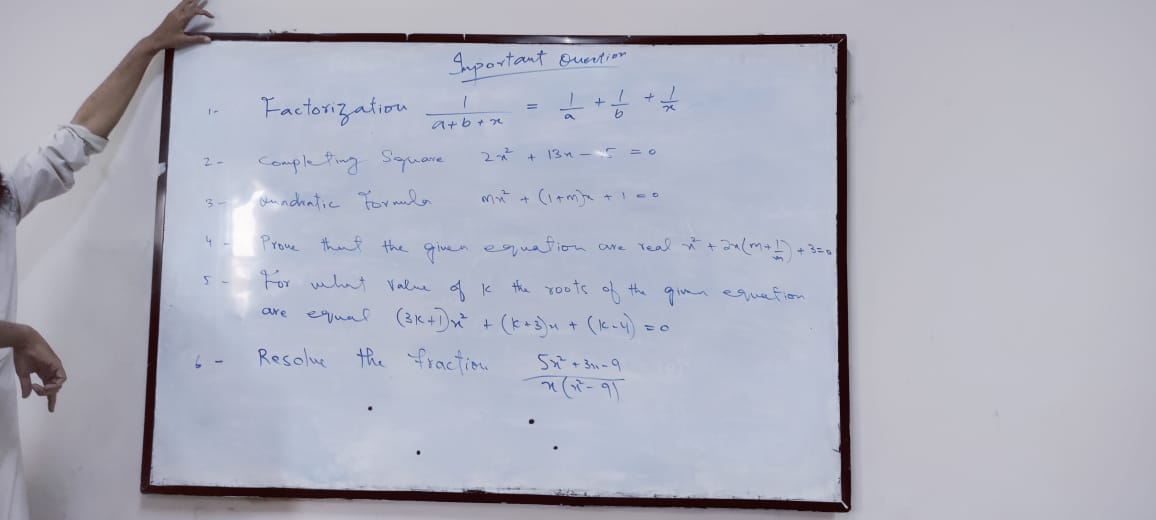 Important Question
1- Factorization 1/(a+b+x) = 1/a + 1/b + 1/x
2- Completing Square 2x² + 13x - 5 = 0
3- Quadratic Formula mx² + (1+m)x + 1 = 0
4- Prove that the given equation are real x² + 2x(m+1/m) + 3=0
5- For what value of K the roots of the given equation
are equal (3K+1)x² + (K+3)x + (K-4) = 0
6- Resolve the fraction (5x² + 3x - 9)/(x(x² - 9))